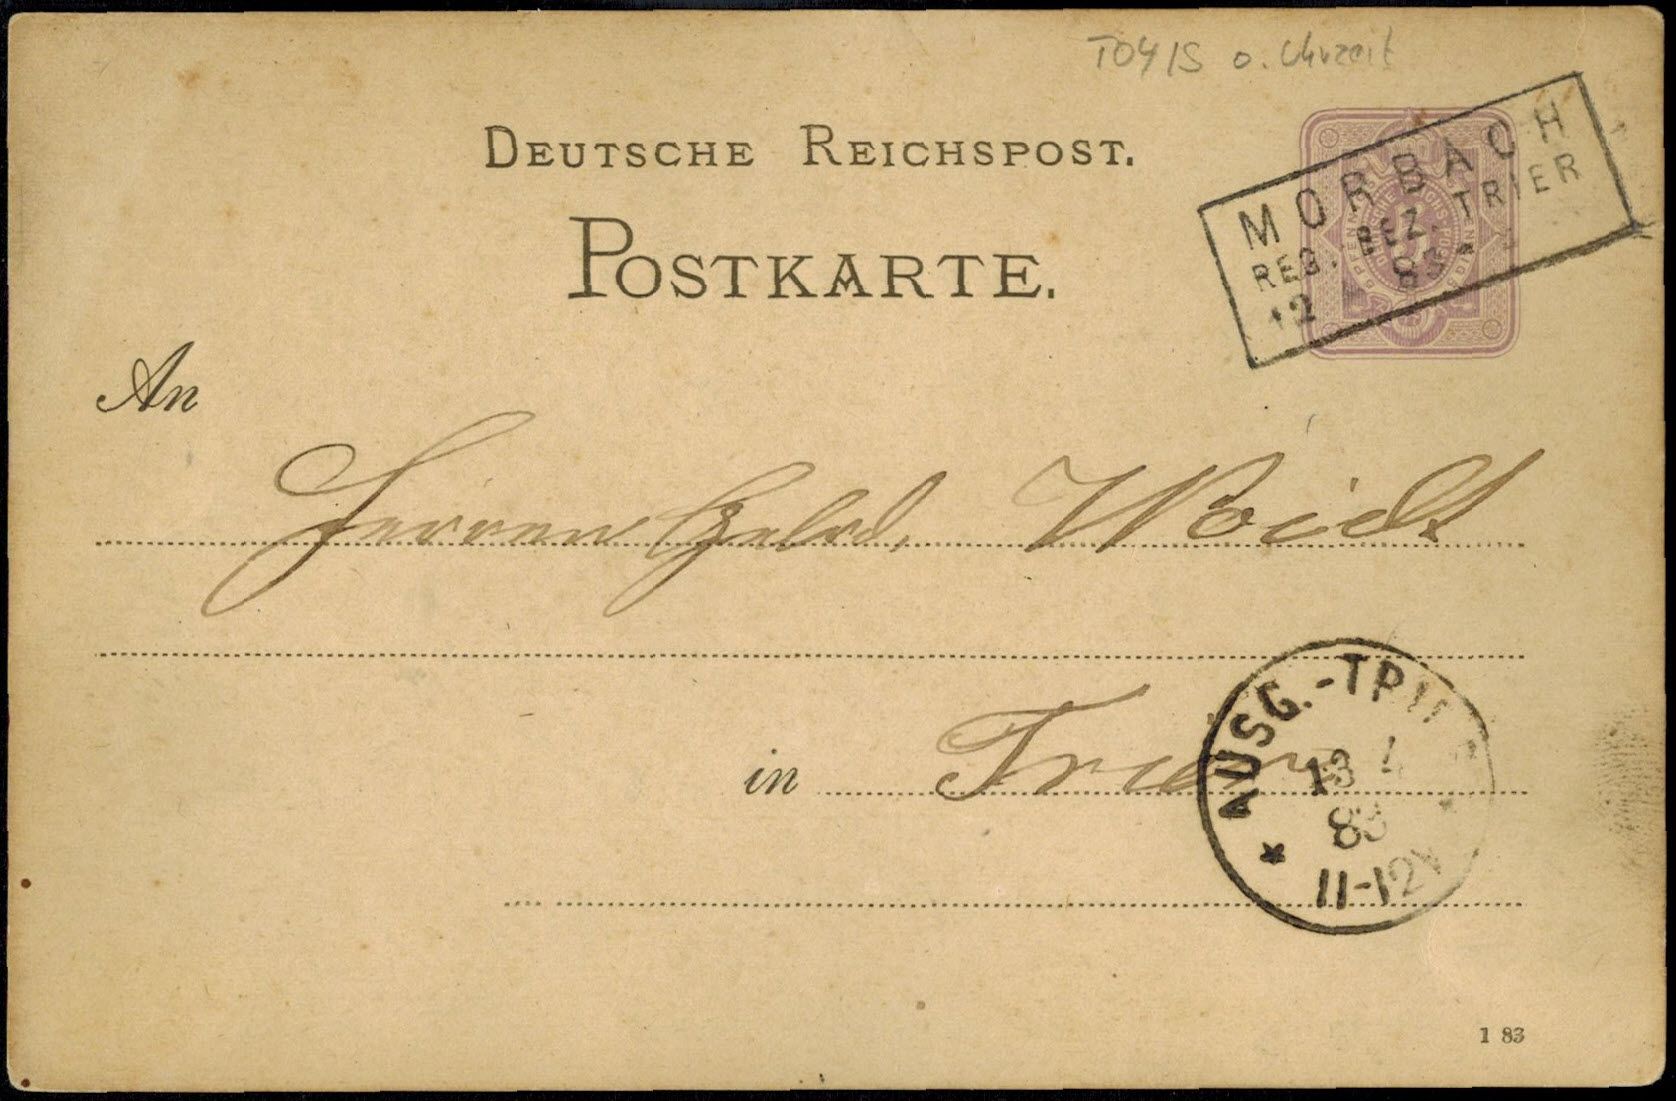 T04/S o. Uhrzeit
DEUTSCHE REICHSPOST.
POSTKARTE.
MORBACH
REG. BEZ. TRIER
12 83
An
Herren Gebrd. Voidt
in Trier
AUSG.-TRIE
13 4
83
11-12V
1 83